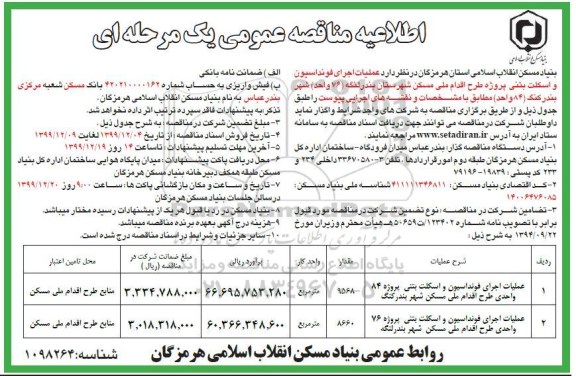 اطلاعیه مناقصه عمومی یک مرحله ای
بنیاد مسکن انقلاب اسلامی استان هرمزگان در نظر دارد عملیات اجرای فونداسیون
و اسکلت بتنی پروژه طرح اقدام ملی مسکن شهرستان بندرلنگه (۷۶ واحد) شهر
بندر کنگ (۸۴ واحد) مطابق با مشخصات و نقشه های اجرایی پیوست را طبق
جدول ذیل و از طریق برگزاری مناقصه به شرکت های واجد شرایط واگذار نماید
داوطلبان شرکت در مناقصه می توانند جهت دریافت اسناد مناقصه به سامانه
ستاد ایران به آدرس www.setadiran.ir مراجعه نمایند.
۱- آدرس دستگاه مناقصه گذار: بندرعباس میدان فرودگاه - ساختمان اداره کل
بنیاد مسکن هرمزگان طبقه دوم امور قراردادها ، تلفن ۳-۳۳۶۷۰۵۸۰ داخلی ۲۳۴ و
۲۳۳ کد پستی : ۷۹۱۹۶-۱۹۸۳۹
۲- کد اقتصادی بنیاد مسکن : ۴۱۱۱۱۱۳۴۶۸۱۱ شناسه ملی بنیاد مسکن:
۱۴۰۰۶۴۷۶۰۸۵
۳- تضامین شرکت در مناقصه: نوع تضمین شرکت در مناقصه مورد قبول
برابر با تصویب نامه شماره ۱۲۳۴۰۲/ت۵۰۶۵۹ه هیأت محترم وزیران مورخ
۱۳۹۴/۰۹/۲۲ به شرح ذیل :
الف) ضمانت نامه بانکی
ب) فیش واریزی به حساب شماره ۴۲۰۲۱۰۰۰۰۱۶۲ بانک مسکن شعبه مرکزی
بندرعباس به نام بنیاد مسکن انقلاب اسلامی هرمزگان.
تذکر: به پیشنهادات فاقد سپرده ترتیب اثر داده نخواهد شد.
۳- مبلغ تضمین شرکت در مناقصه: به شرح جدول ذیل.
۴- تاریخ فروش اسناد مناقصه: از تاریخ ۱۳۹۹/۱۲/۰۴ لغایت ۱۳۹۹/۱۲/۰۹
۵- آخرین مهلت تسلیم پیشنهادات : تا ساعت ۱۴ روز ۱۳۹۹/۱۲/۱۹
۶- محل دریافت پاکت پیشنهادات : میدان پایگاه هوایی ساختمان اداره کل بنیاد
مسکن طبقه همکف دبیرخانه بنیاد مسکن
۷- تاریخ و ساعت و مکان بازگشائی پاکت ها: ساعت ۹:۰۰ روز ۱۳۹۹/۱۲/۲۰
در سالن جلسات بنیاد مسکن
۸- بنیاد مسکن در رد یا قبول هر یک از پیشنهادات رسیده مختار میباشد.
۹- هزینه درج آگهی بعهده برنده مناقصه میباشد.
۱۰- سایر جزئیات و شرایط در اسناد مناقصه درج شده است.
ردیف شرح عملیات مقدار واحد کار برآورد ریالی مبلغ ضمانت شرکت در مناقصه (ریال) محل تامین اعتبار
۱ عملیات اجرای فونداسیون و اسکلت بتنی پروژه ۸۴ واحدی طرح اقدام ملی مسکن شهر بندرکنگ ۹۵۶۸ مترمربع ۶۶,۶۹۵,۷۵۳,۲۸۰ ۳,۳۳۴,۷۸۸,۰۰۰ منابع طرح اقدام ملی مسکن
۲ عملیات اجرای فونداسیون و اسکلت بتنی پروژه ۷۶ واحدی طرح اقدام ملی مسکن شهر بندرلنگه ۸۶۶۰ مترمربع ۶۰,۳۶۶,۳۴۸,۶۰۰ ۳,۰۱۸,۳۱۸,۰۰۰ منابع طرح اقدام ملی مسکن
روابط عمومی بنیاد مسکن انقلاب اسلامی هرمزگان
شناسه: ۱۰۹۸۲۶۴